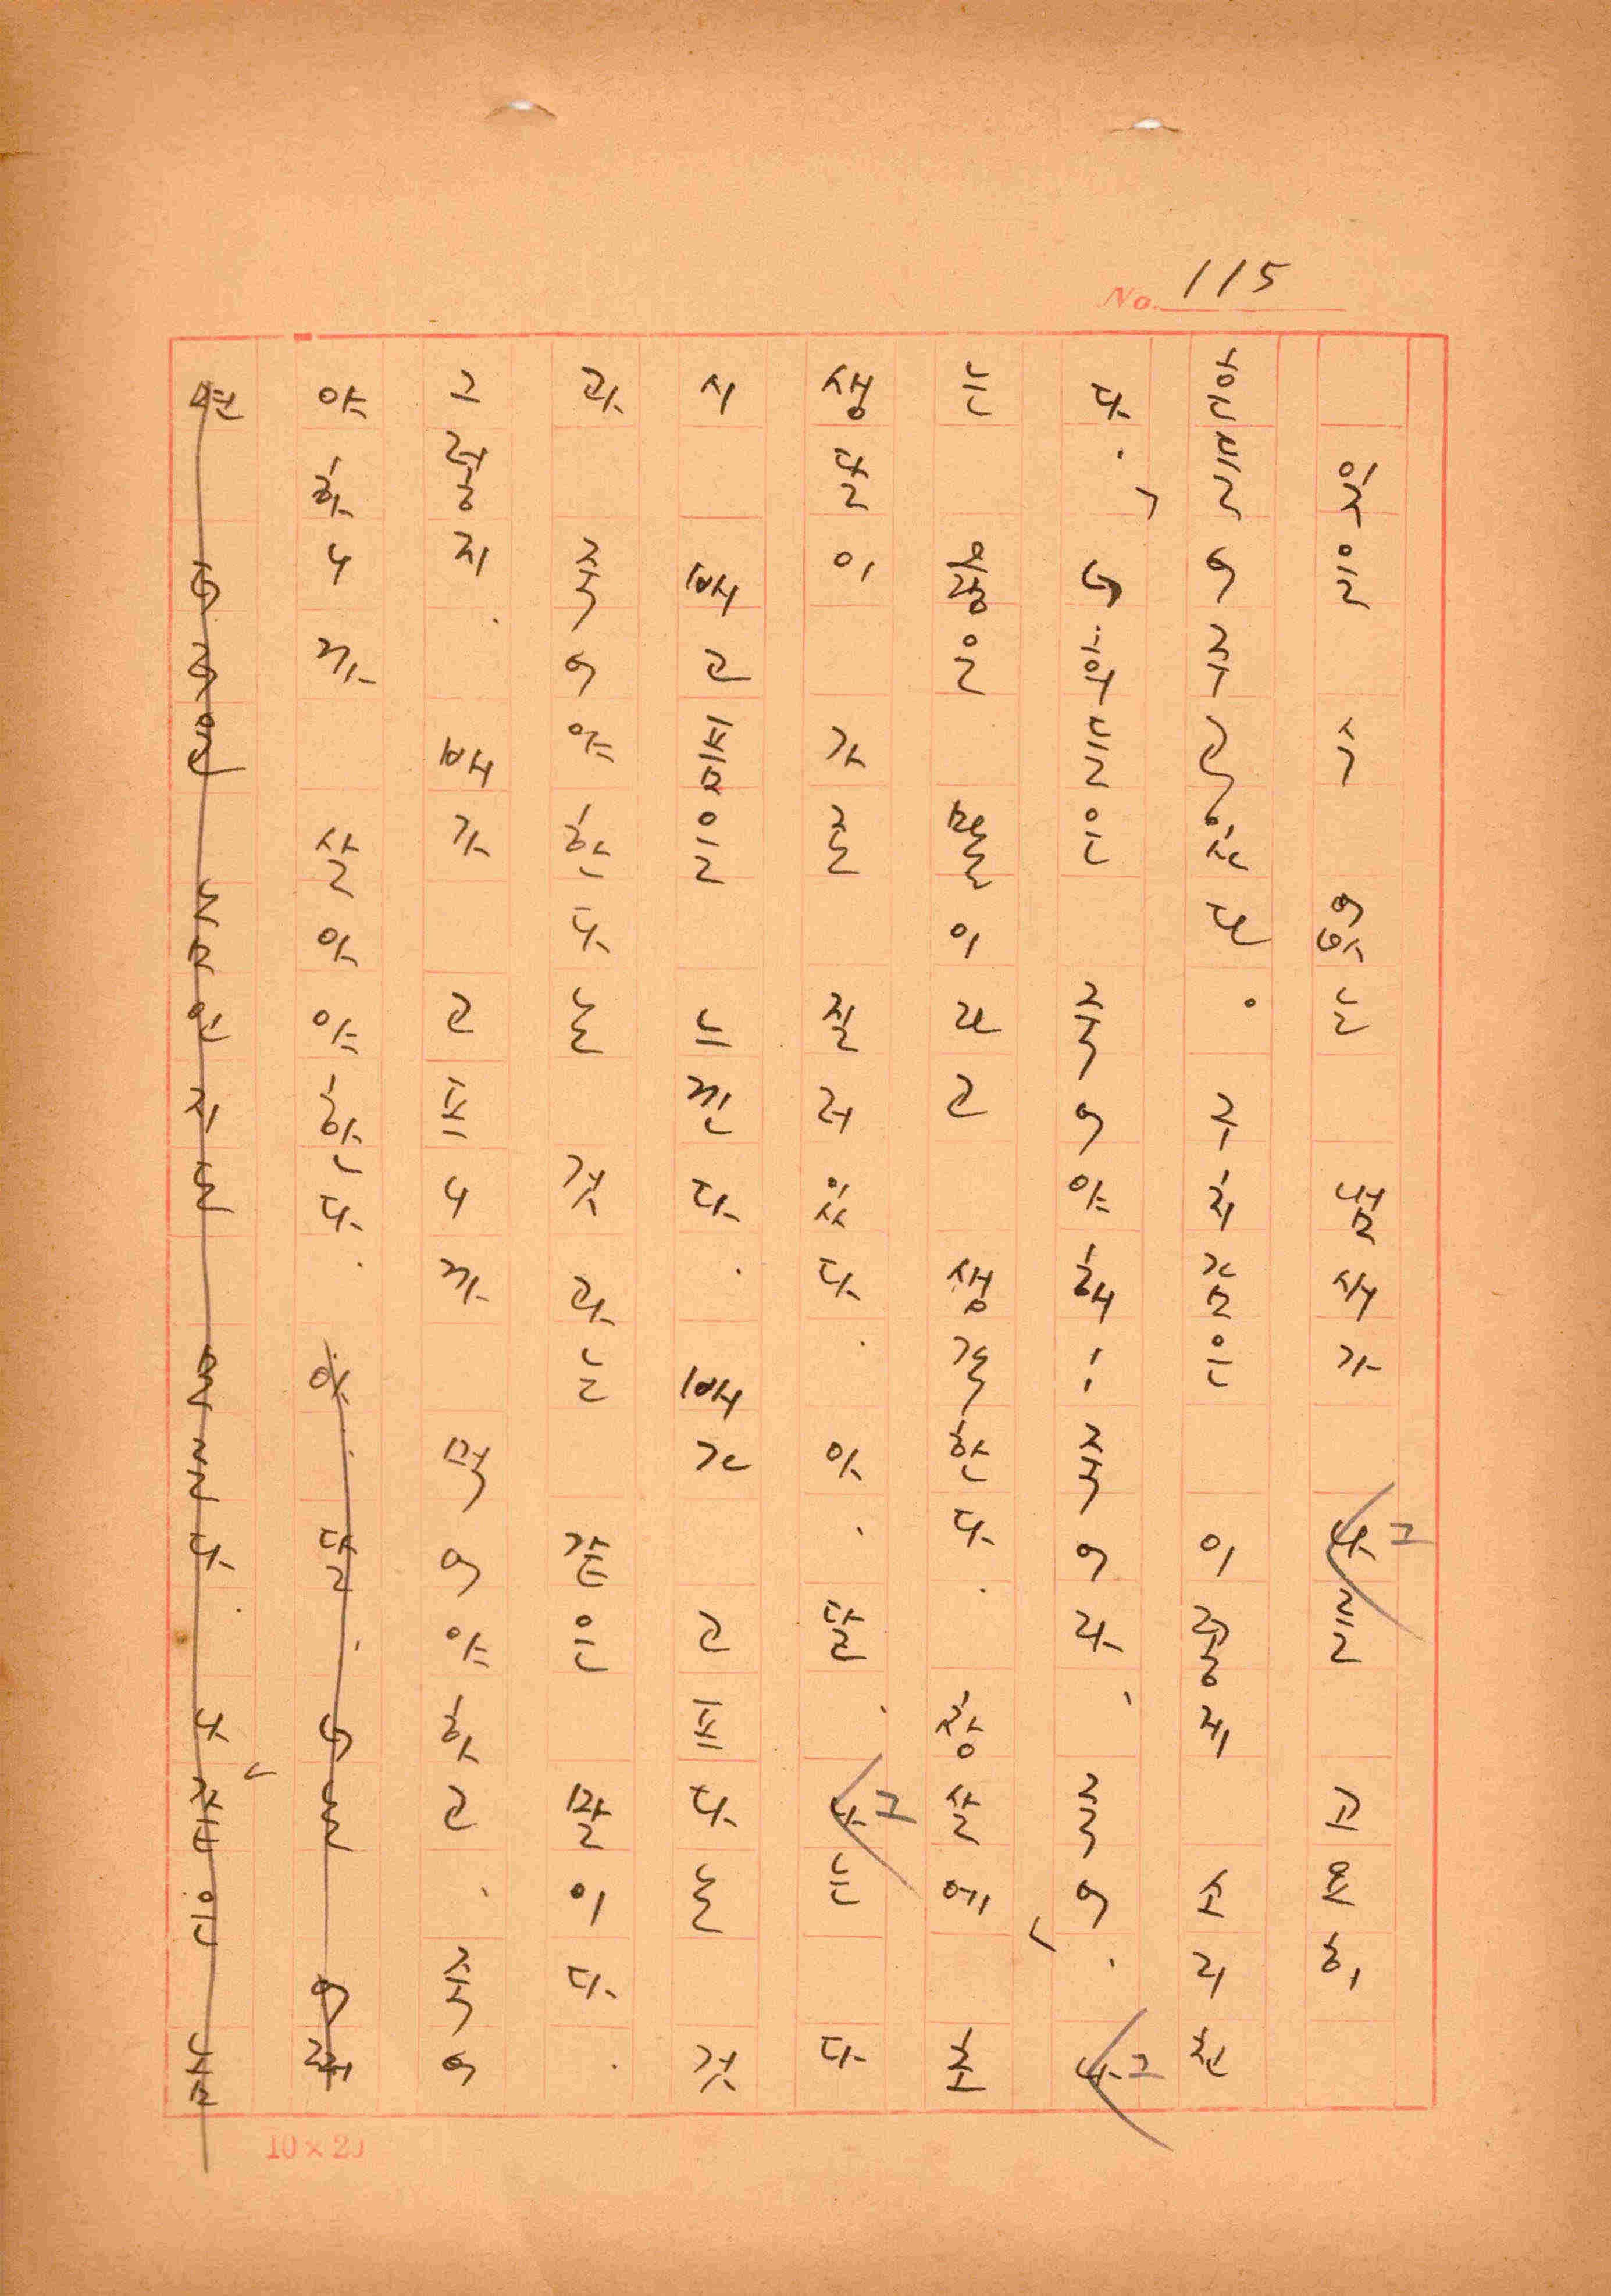 115
잊을 수 없는 냄새가 나그를 고요히
어주고 있다. 은 이렇게 소리친
다. 「너희들은 죽어야 해! 죽어라, 죽어」. 나그
는 옳은 말이라고 생각한다. 창살에 초
생달이 가로질러 있다. 아, 달, 나그는 다
시 배고픔을 느낀다. 배가 고프다는 것
과 죽어야 한다는 것과는 같은 말이다.
그렇지. 배가 고프니까 먹어야 하고, 죽어
야 하니까 살아야 한다. 아, 달, 너는 어쩌
면 눈인지도 모른다. 나 자신인
No.
10×20